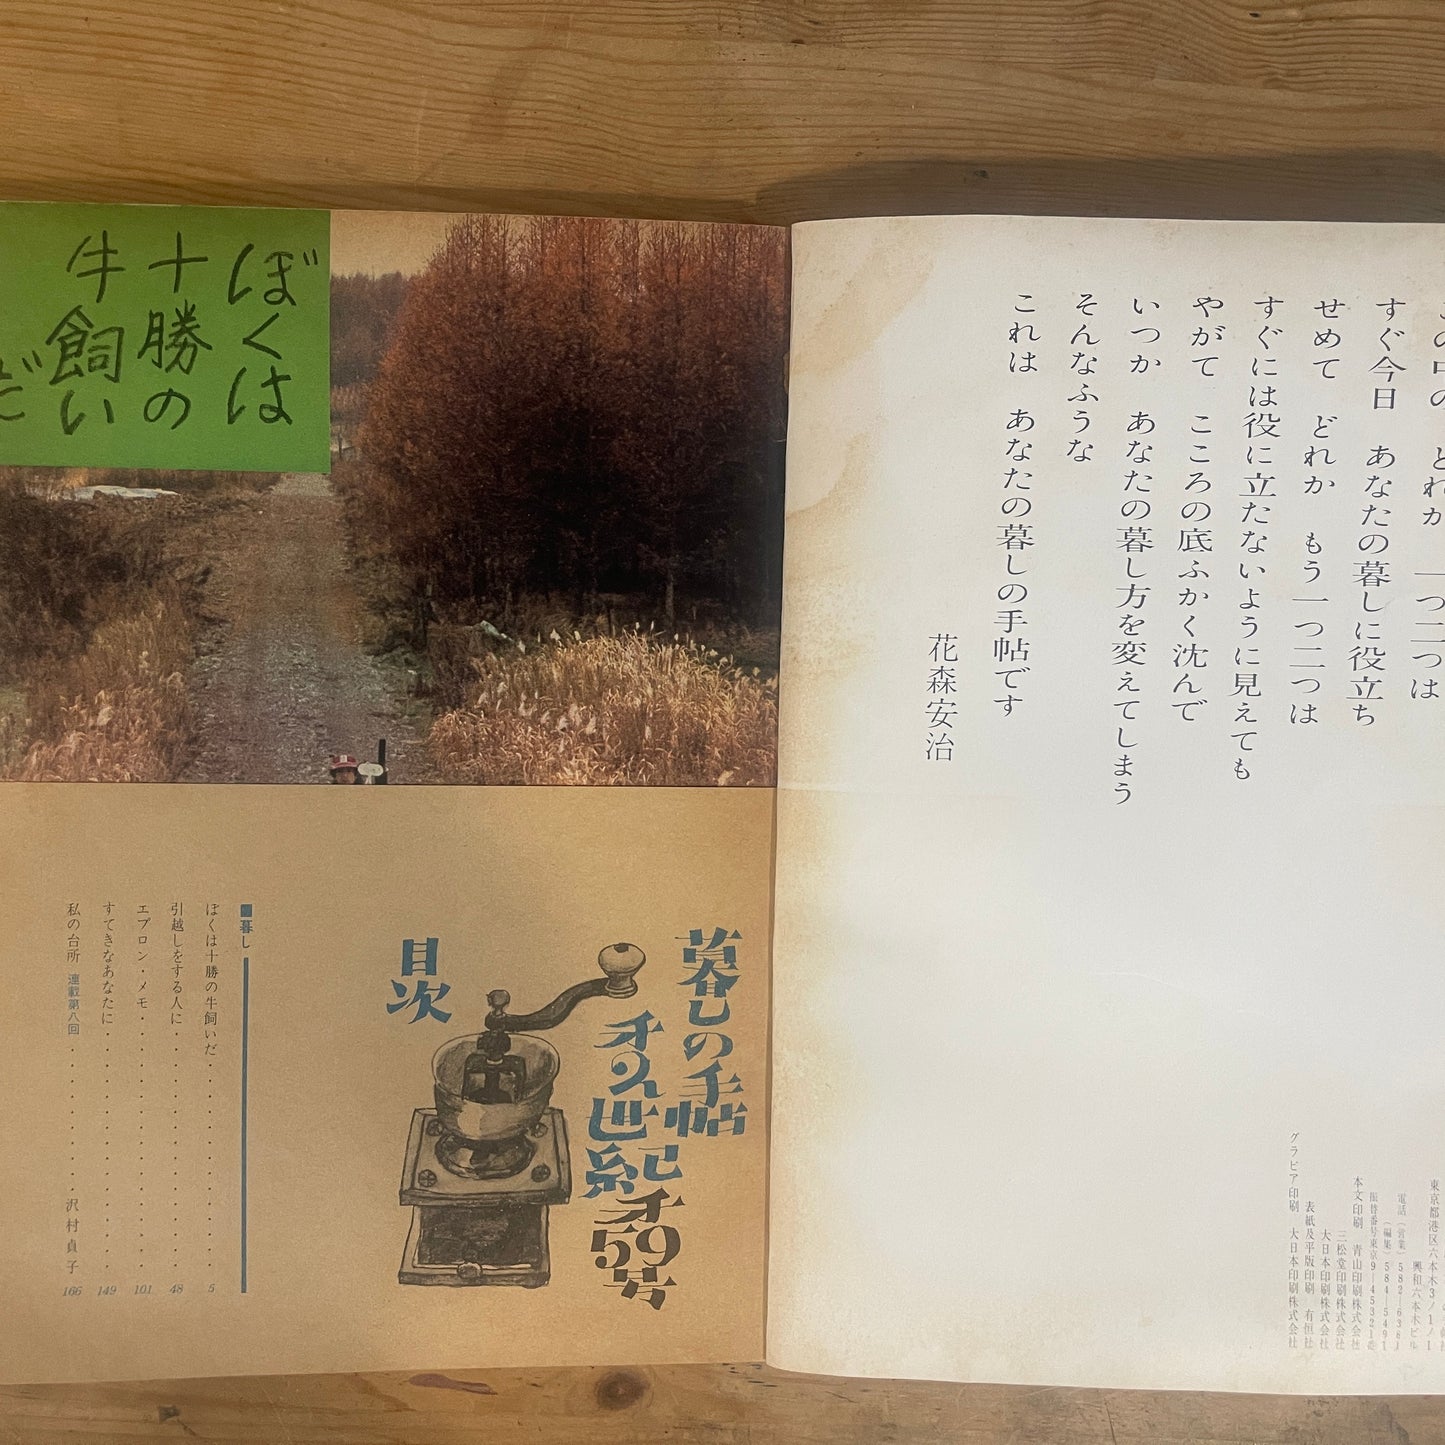 すぐ今日 あなたの暮しに役立ち
せめて どれか もう一つ二つは
すぐには役に立たないように見えても
やがて こころの底ふかく沈んで
いつか あなたの暮し方を変えてしまう
そんなふうな
これは あなたの暮しの手帖です
花森安治
東京都港区六本木3ノ1ノ1
興和六本木ビル
本文印刷 青山印刷株式会社
三松堂印刷株式会社
大日本印刷株式会社
表紙及平版印刷 有恒社
グラビア印刷 大日本印刷株式会社
ぼくは
十勝の
牛飼い
だ
暮しの手帖
オ2世紀
オ59号
目次
■暮し
ぼくは十勝の牛飼いだ 5
引越しをする人に 48
エプロン・メモ 101
すてきなあなたに 149
私の台所 連載第八回 沢村貞子 166